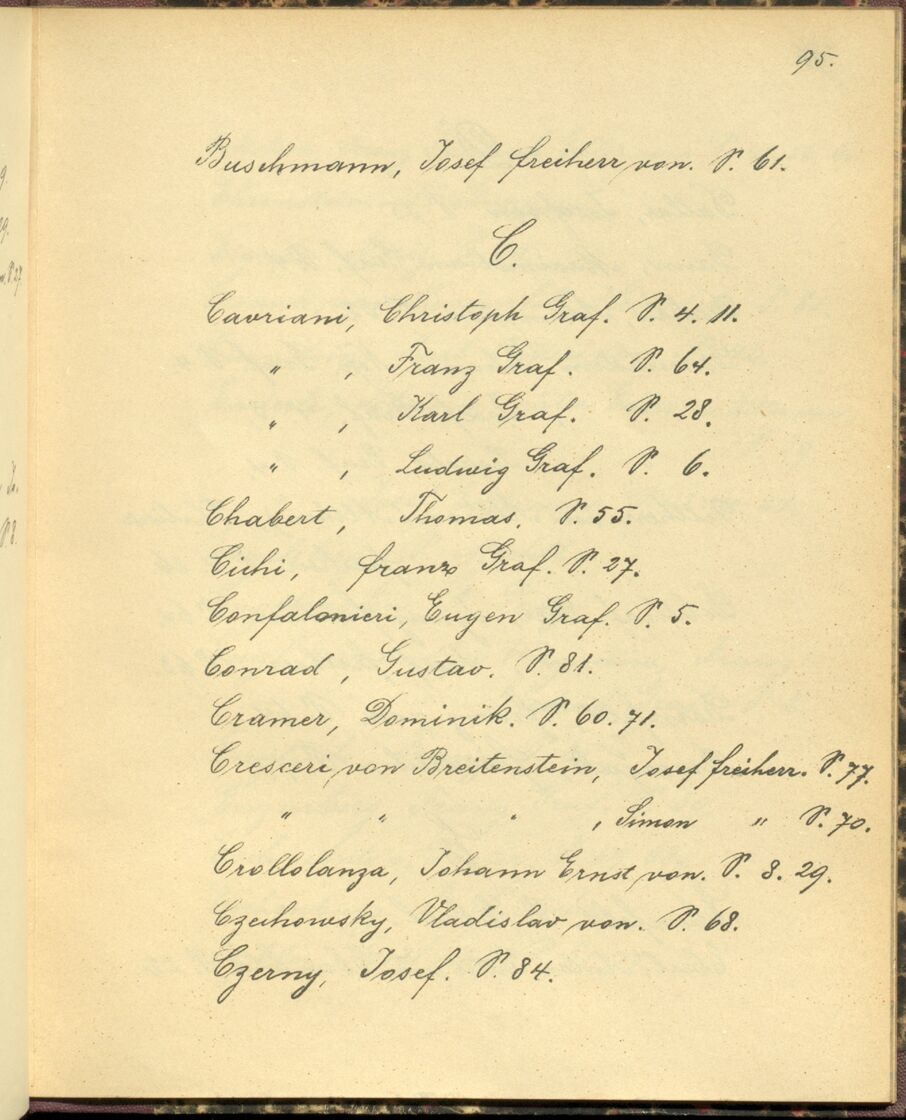 95.
Buschmann, Josef freiherr von. S. 61.
C.
Cavriani, Christoph Graf. S. 4. 11.
" , Franz Graf. S. 64.
" , Karl Graf. S. 28.
" , Ludwig Graf. S. 6.
Chabert, Thomas. S. 55.
Cichi, franz Graf. S. 27.
Confalonieri, Eugen Graf. S. 5.
Conrad, Gustav. S. 81.
Cramer, Dominik. S. 60. 71.
Cresceri von Breitenstein, Josef freiherr. S. 77.
" " " , Simon " S. 70.
Crollolanza, Johann Ernst von. S. 8. 29.
Czechowsky, Vladislav von. S. 68.
Czerny, Josef. S. 84.